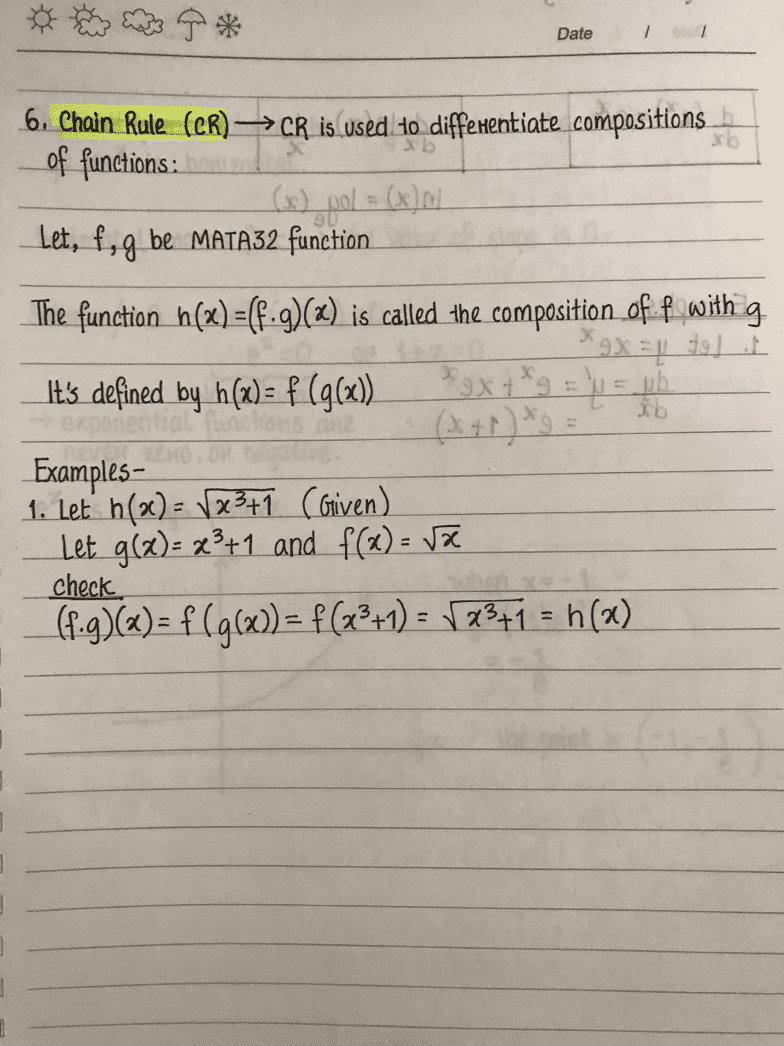 Date / /
6. Chain Rule (CR) → CR is used to differentiate compositions
of functions:
Let, f, g be MATA32 function
The function h(x) = (f.g)(x) is called the composition of f with g
It's defined by h(x) = f (g(x))
Examples-
1. Let h(x) = √x³+1 (Given)
Let g(x) = x³+1 and f(x) = √x
check
(f.g)(x) = f(g(x)) = f(x³+1) = √x³+1 = h(x)